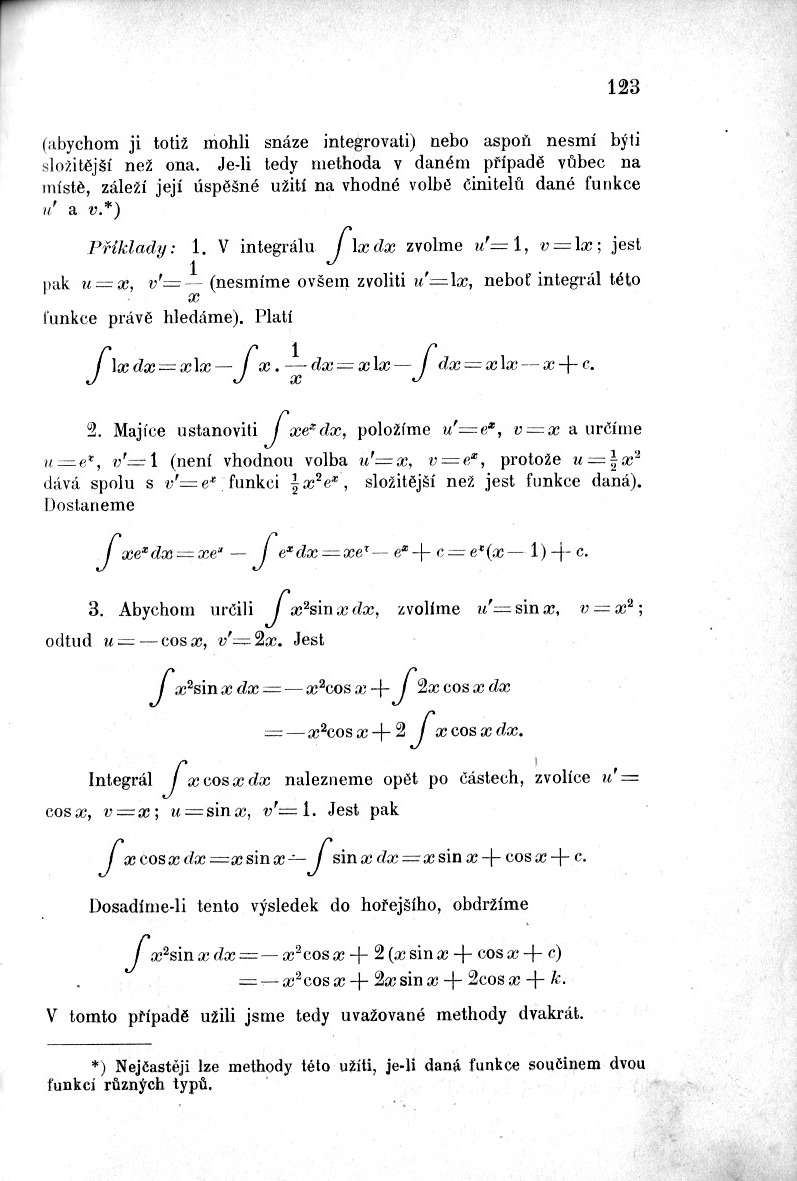 123
(abychom ji totiž mohli snáze integrovati) nebo aspoň nesmí býti
složitější než ona. Je-li tedy methoda v daném případě vůbec na
místě, záleží její úspěšné užití na vhodné volbě činitelů dané funkce
u′ a v.*)
Příklady: 1. V integrálu ∫ lx dx zvolme u′=1, v=lx; jest
pak u=x, v′=1/x (nesmíme ovšem zvoliti u′=lx, neboť integrál této
funkce právě hledáme). Platí
∫ lx dx = x lx — ∫ x . 1/x dx = x lx — ∫ dx = x lx — x + c.
2. Majíce ustanoviti ∫ xeˣ dx, položíme u′=eˣ, v=x a určíme
u=eˣ, v′=1 (není vhodnou volba u′=x, v=eˣ, protože u=½x²
dává spolu s v′=eˣ funkci ½x²eˣ, složitější než jest funkce daná).
Dostaneme
∫ xeˣ dx = xeˣ — ∫ eˣ dx = xeˣ — eˣ + c = eˣ(x — 1) + c.
3. Abychom určili ∫ x²sin x dx, zvolíme u′=sin x, v=x²;
odtud u=—cos x, v′=2x. Jest
∫ x²sin x dx = — x²cos x + ∫ 2x cos x dx
= — x²cos x + 2 ∫ x cos x dx.
Integrál ∫ x cos x dx nalezneme opět po částech, zvolíce u′=
cos x, v=x; u=sin x, v′=1. Jest pak
∫ x cos x dx = x sin x — ∫ sin x dx = x sin x + cos x + c.
Dosadíme-li tento výsledek do hořejšího, obdržíme
∫ x²sin x dx = — x²cos x + 2 (x sin x + cos x + c)
= — x²cos x + 2x sin x + 2cos x + k.
V tomto případě užili jsme tedy uvažované methody dvakrát.
*) Nejčastěji lze methody této užíti, je-li daná funkce součinem dvou
funkcí různých typů.